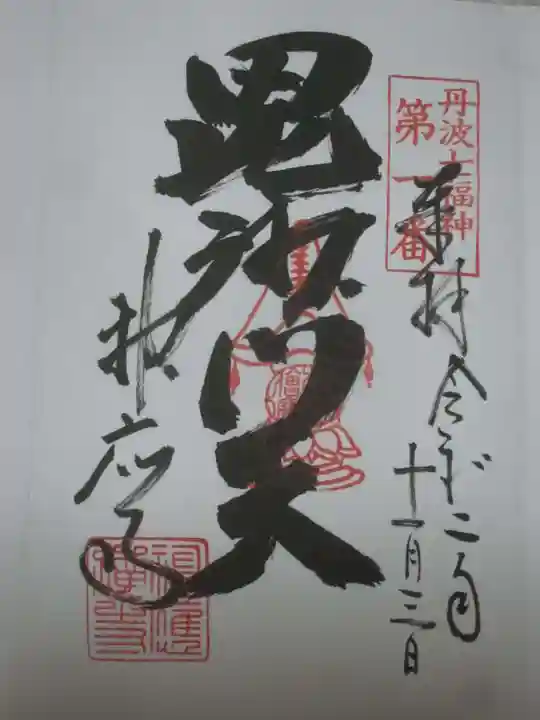 丹波七福神
第一番
奉拝 令和二年
十一月三日
毘沙門天
神応寺